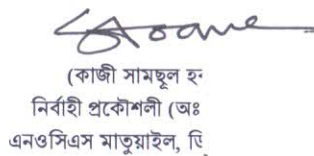 (কাজী সামছুল হ
নির্বাহী প্রকৌশলী (অঃ
এনওসিএস মাতুয়াইল,